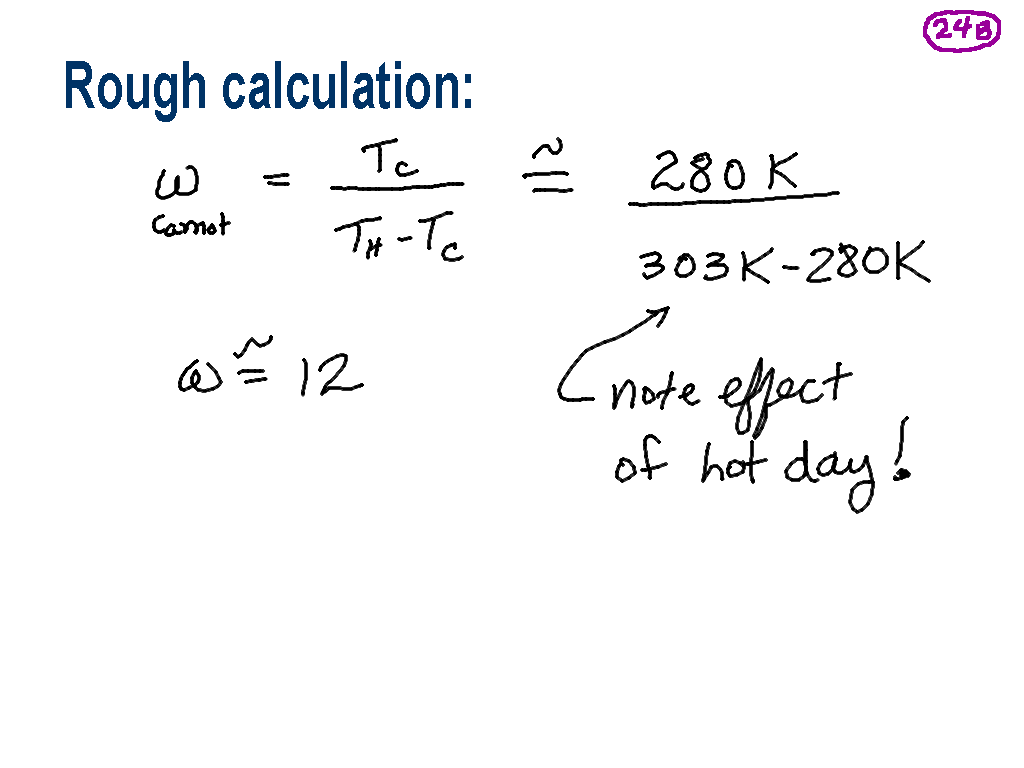 24B
Rough calculation:
ω Carnot = T_C / (T_H - T_C) ≅ 280 K / (303 K - 280 K)
ω ≅ 12
note effect
of hot day!